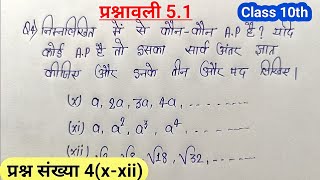 प्रश्नावली 5.1
Class 10th
Q4) निम्नलिखित में से कौन-कौन A.P है? यदि
कोई A.P है तो इसका सार्व अंतर ज्ञात
कीजिए और इनके तीन और पद लिखिए।
(x) a, 2a, 3a, 4a .......
(xi) a, a², a³, a⁴ .......
(xii) √2, √8, √18, √32, .......
प्रश्न संख्या 4(x-xii)